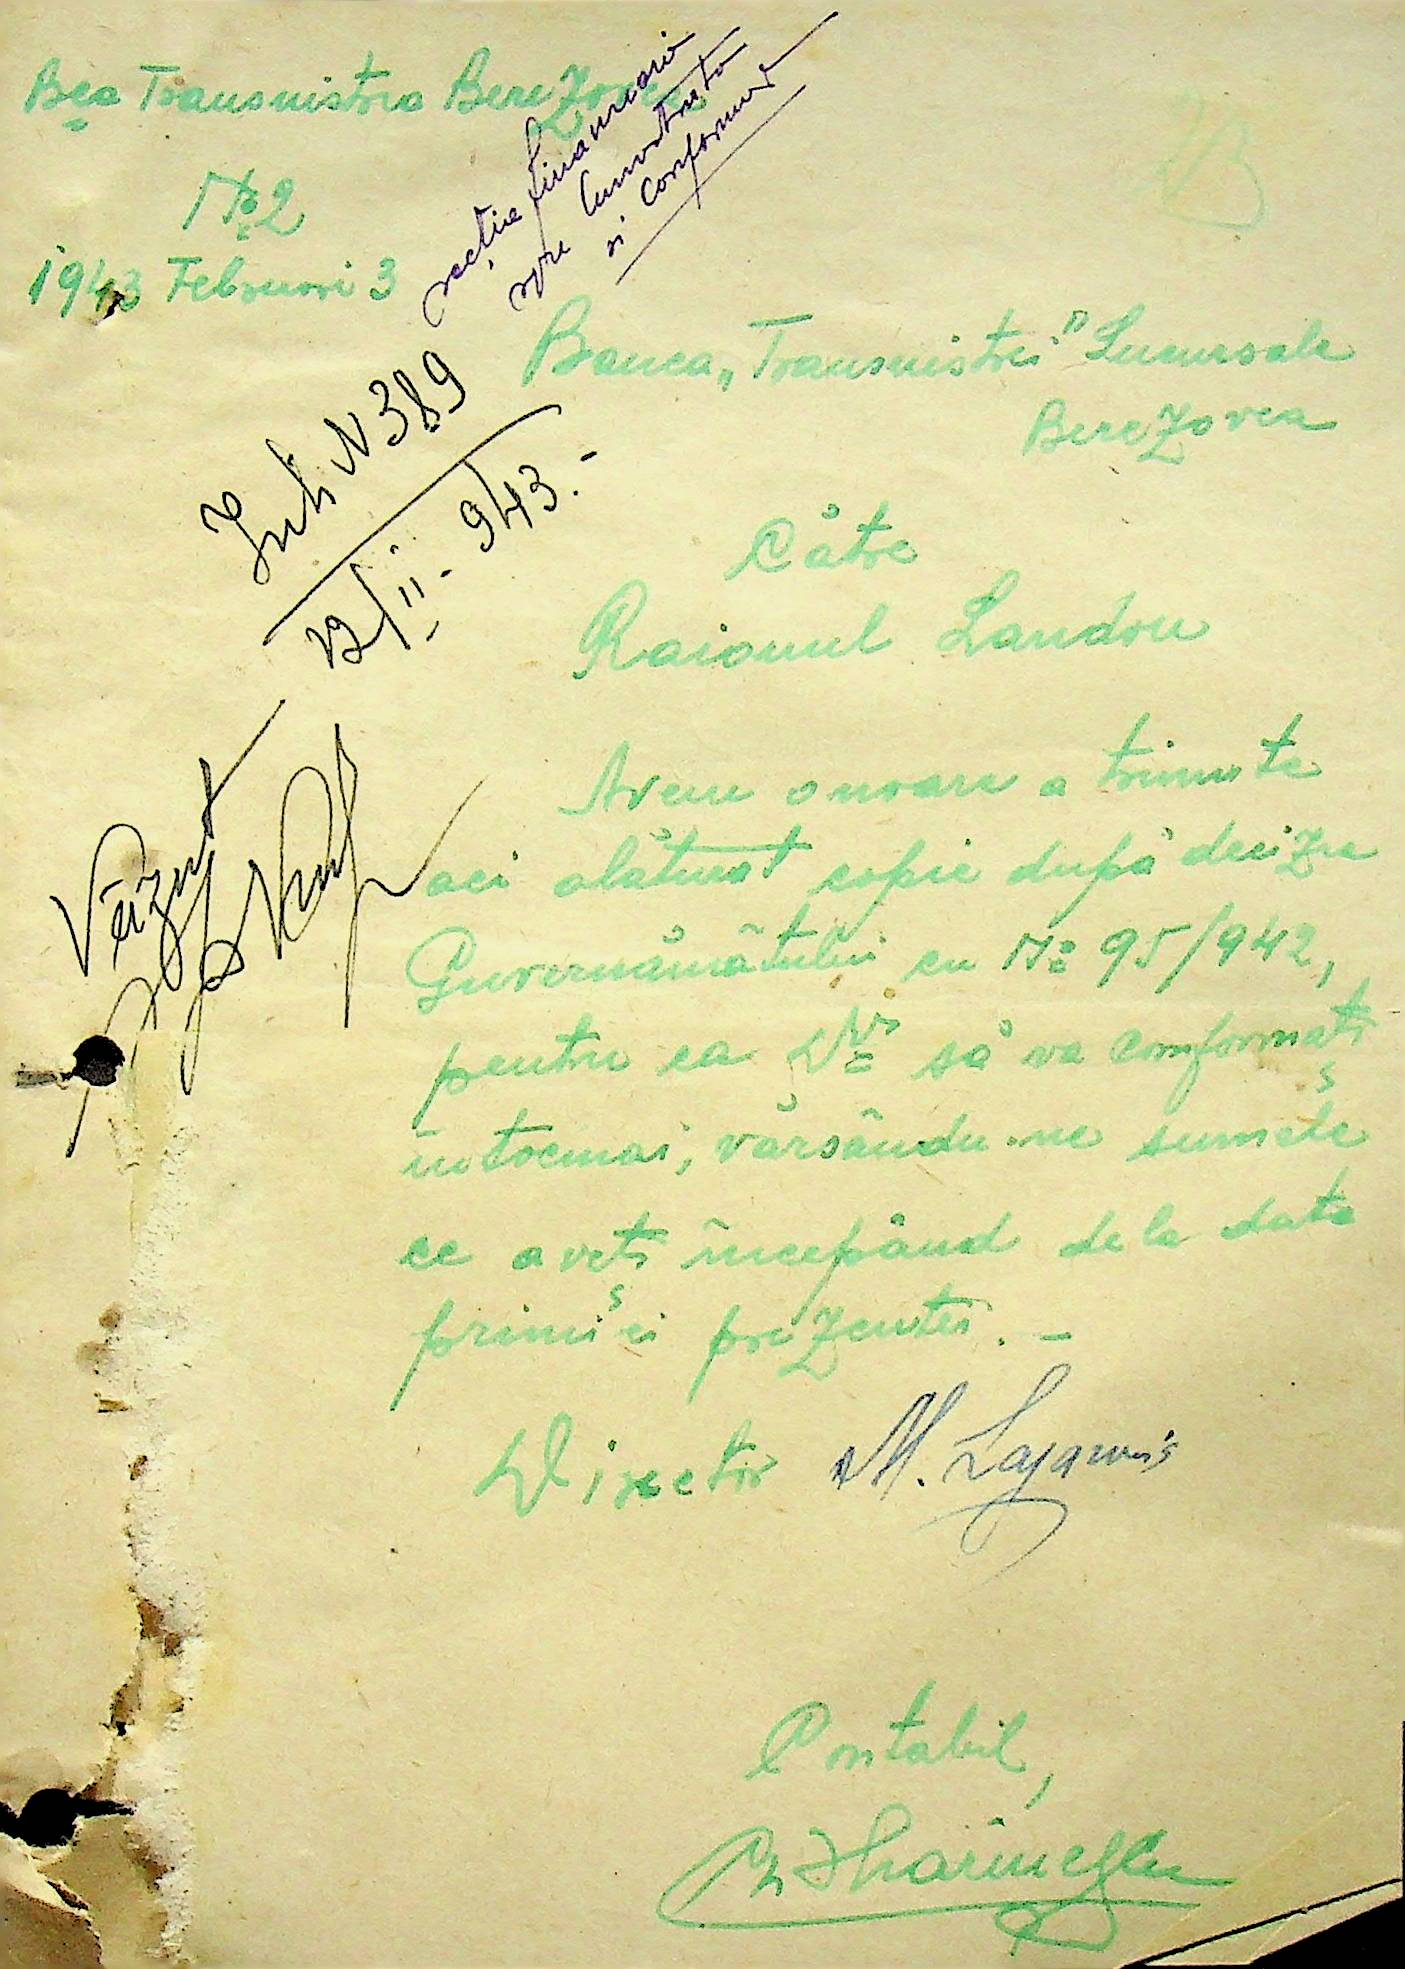 Bca Transnistria Berezovca
№ 2
1943 Februari 3
secție financiară
spre cunoștință
și conformare
Banca „Transnistrei" Sucursala
Berezovca
Către
Raionul Landou
Intr. N 389
12/II - 943.-
Avem onoare a trimite
aci alăturat copie după decizie
Guvernământului cu № 95/942,
pentru ca Dvs să va conformați
întocmai, vărsându-ne sumele
ce aveți începând de la data
primișei prezentei. -
Văzut
Director M.
Contabil,